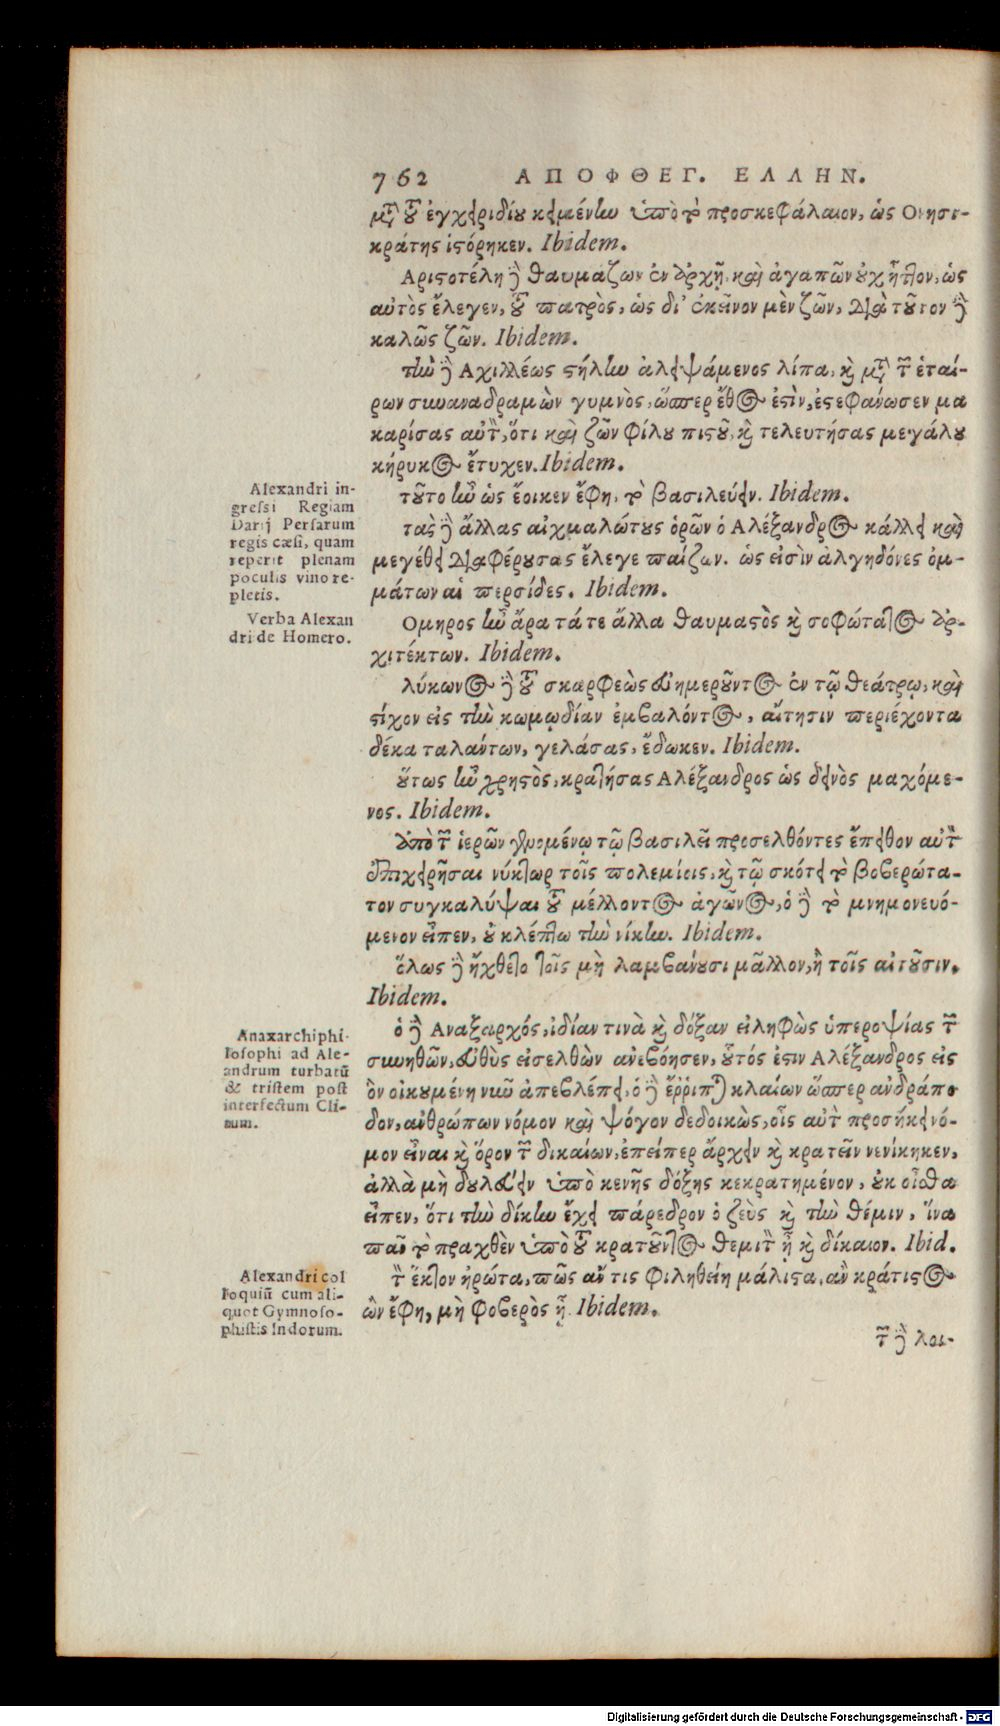 762 ΑΠΟΦΘΕΓ. ΕΛΛΗΝ.
μ͂τ τοῦ ἐγχειριδίου κειμένην ὑπὸ τὸ προσκεφάλαιον, ὡς Ονησι-
κράτης ἱστόρηκεν. Ibidem.
Αριστοτέλη δὲ θαυμάζων ἐν ἀρχῇ, καὶ ἀγαπῶν οὐχ ἧττον, ὡς
αὐτὸς ἔλεγεν, τοῦ πατρὸς, ὡς δι' ἐκεῖνον μὲν ζῶν, διὰ τοῦτον δὲ
καλῶς ζῶν. Ibidem.
τὴν δὲ Αχιλλέως στήλην ἀλειψάμενος λίπα, καὶ μτ τῶν ἑταί-
ρων συναναδραμὼν γυμνὸς, ὥσπερ ἔθος ἐστὶν, ἐστεφάνωσεν μα
καρίσας αὐτὸν, ὅτι καὶ ζῶν φίλου πιστοῦ, καὶ τελευτήσας μεγάλου
κήρυκος ἔτυχεν. Ibidem.
Alexandri in-
gressi Regiam
Darij Persarum
regis cæsi, quam
reperit plenam
poculis vino re-
pletis.
τοῦτο ἦν ὡς ἔοικεν ἔφη, τὸ βασιλεύειν. Ibidem.
τὰς δὲ ἄλλας αἰχμαλώτους ὁρῶν ὁ Αλέξανδρος κάλλει καὶ
μεγέθει διαφέρουσας ἔλεγε παίζων. ὡς εἰσὶν ἀλγηδόνες ὀμ-
μάτων αἱ περσίδες. Ibidem.
Verba Alexan
dri de Homero.
Ομηρος ἦν ἄρα τά τε ἄλλα θαυμαστὸς καὶ σοφώτατος ἀρ-
χιτέκτων. Ibidem.
λύκωνος δὲ τοῦ σκαρφεὼς εὐημεροῦντος ἐν τῷ θεάτρῳ, καὶ
στίχον εἰς τὴν κωμῳδίαν ἐμβαλόντος, αἴτησιν περιέχοντα
δέκα ταλάντων, γελάσας, ἔδωκεν. Ibidem.
οὕτως ἦν χρηστὸς, κρατήσας Αλέξανδρος ὡς δεινὸς μαχόμε-
νος. Ibidem.
ἀπὸ τῶν ἱερῶν γενομένῳ τῷ βασιλεῖ προσελθόντες ἔπειθον αὐτὸν
ἐπιχειρῆσαι νύκτωρ τοῖς πολεμίοις, καὶ τῷ σκότει τὸ βοβερώτα-
τον συγκαλύψαι τοῦ μέλλοντος ἀγῶνος, ὁ δὲ τὸ μνημονευό-
μενον εἶπεν, οὐ κλέπτω τὴν νίκην. Ibidem.
ὅλως δὲ ἤχθετο τοῖς μὴ λαμβάνουσι μᾶλλον, ἢ τοῖς αἰτοῦσιν.
Ibidem.
Anaxarchi phi-
losophi ad Ale-
andrum turbatū
& tristem post
interfectum Cli-
tum.
ὁ δὲ Αναξαρχός, ἰδίαν τινὰ καὶ δόξαν εἰληφὼς ὑπεροψίας τῶν
συνηθῶν, εὐθὺς εἰσελθὼν ἀνεβόησεν, οὗτός ἐστιν Αλέξανδρος εἰς
ὃν οἰκουμένη νῦν ἀπεβλέπει, ὁ δὲ ἔῤῥιπται κλαίων ὥσπερ ἀνδράπο
δον, ἀνθρώπων νόμον καὶ ψόγον δεδοικὼς, οἷς αὐτὸν προσήκει νό-
μον εἶναι καὶ ὅρον τῶν δικαίων, ἐπείπερ ἄρχειν καὶ κρατεῖν νενίκηκεν,
ἀλλὰ μὴ δουλεύειν ὑπὸ κενῆς δόξης κεκρατημένον, οὐκ οἶσθα
εἶπεν, ὅτι τὴν δίκην ἔχει πάρεδρον ὁ ζεὺς καὶ τὴν θέμιν, ἵνα
πᾶν τὸ πραχθὲν ὑπὸ τοῦ κρατοῦντος θεμιτὸν ᾖ καὶ δίκαιον. Ibid.
Alexandri col
loquiū cum ali-
quot Gymnoso-
phistis Indorum.
τὸν ἕκτον ἠρώτα, πῶς ἄν τις φιληθείη μάλιστα, ἂν κράτιστος
ὢν ἔφη, μὴ φοβερὸς ᾖ. Ibidem.
τῶν δὲ λοι-
Digitalisierung gefördert durch die Deutsche Forschungsgemeinschaft - DFG